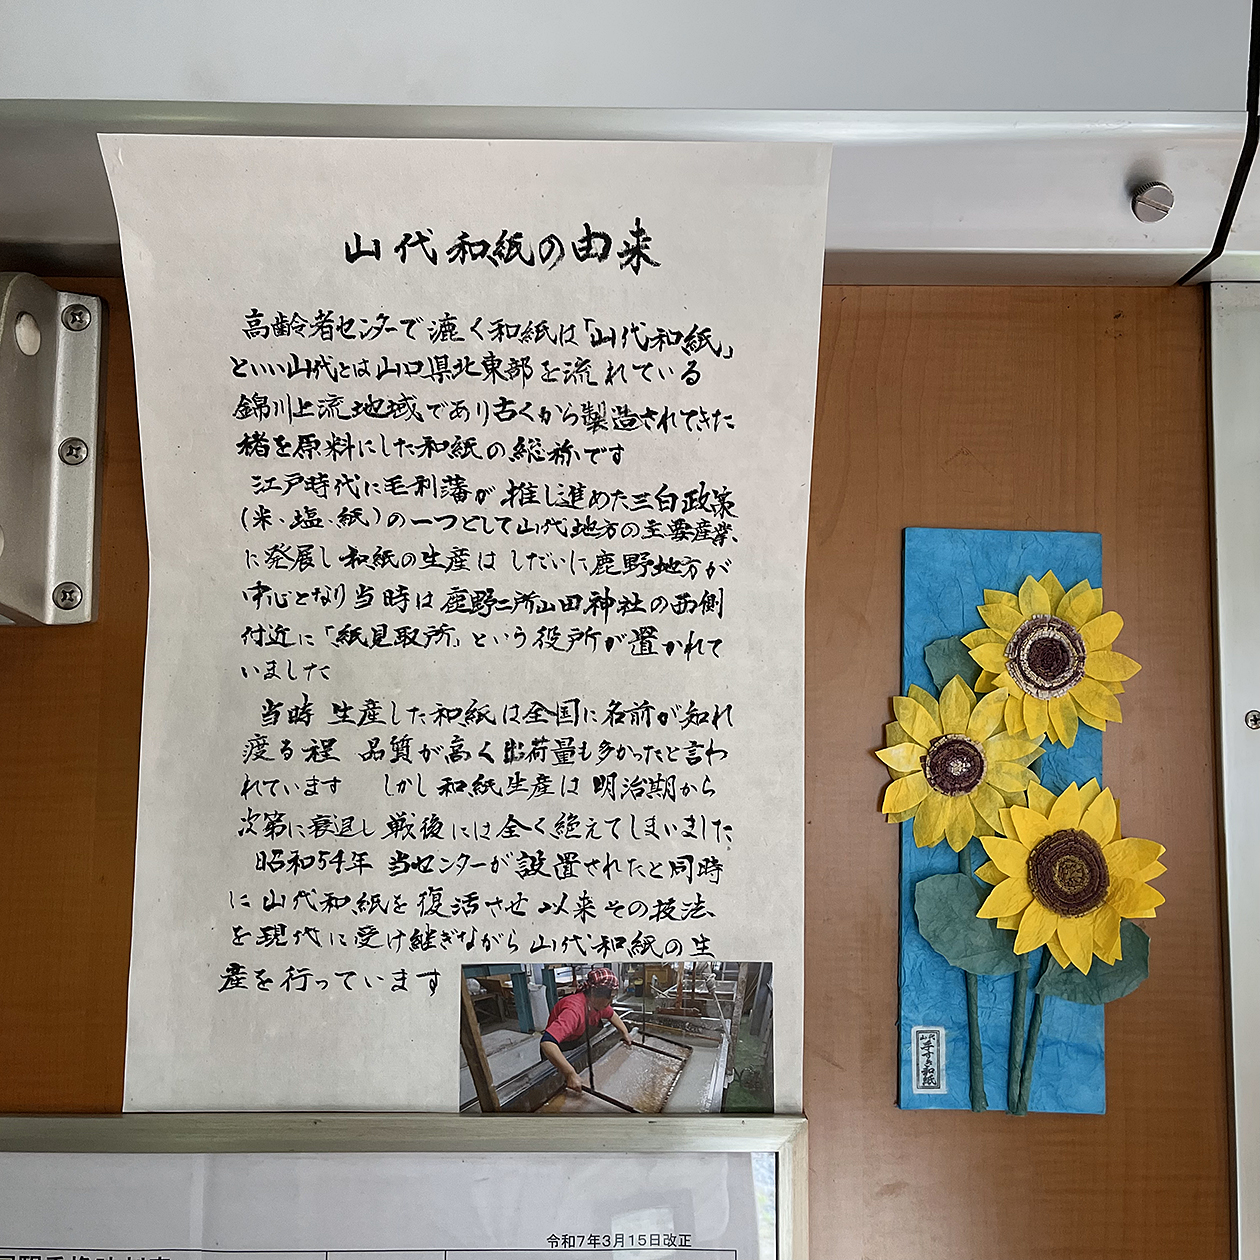 山代和紙の由来
高齢者センターで漉く和紙は「山代和紙」
といい山代とは山口県北東部を流れている
錦川上流地域であり古くから製造されてきた
楮を原料にした和紙の総称です
江戸時代に毛利藩が推し進めた三白政策
(米、塩、紙)の一つとして山代地方の主要産業、
に発展し和紙の生産はしだいに鹿野地方が
中心となり当時は鹿野二所山田神社の西側
付近に「紙見取所」という役所が置かれて
いました
当時 生産した和紙は全国に名前が知れ
渡る程 品質が高く出荷量も多かったと言わ
れています しかし和紙生産は明治期から
次第に衰退し戦後には全く絶えてしまいました
昭和54年 当センターが設置されたと同時
に山代和紙を復活させ以来その技法、
を現代に受け継ぎながら山代和紙の生
産を行っています
山代
手すき和紙
令和7年3月15日改正